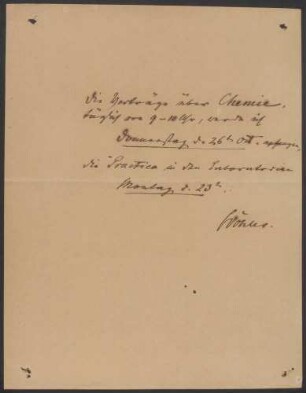 Die Vorträge über Chemie,
täglich von 9-10 Uhr, werde ich
Donnerstag d. 26ten Oct. anfangen,
die Practica in den Laboratorien
Montag d. 23ten.
Wöhler.